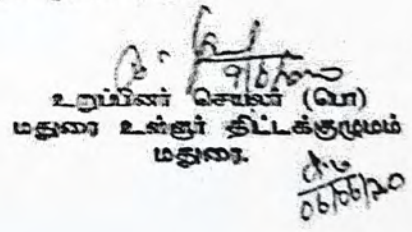 9/6/2020
உறுப்பினர் செயலர் (பொ)
மதுரை உள்ளூர் திட்டக்குழுமம்
மதுரை.
06/06/20